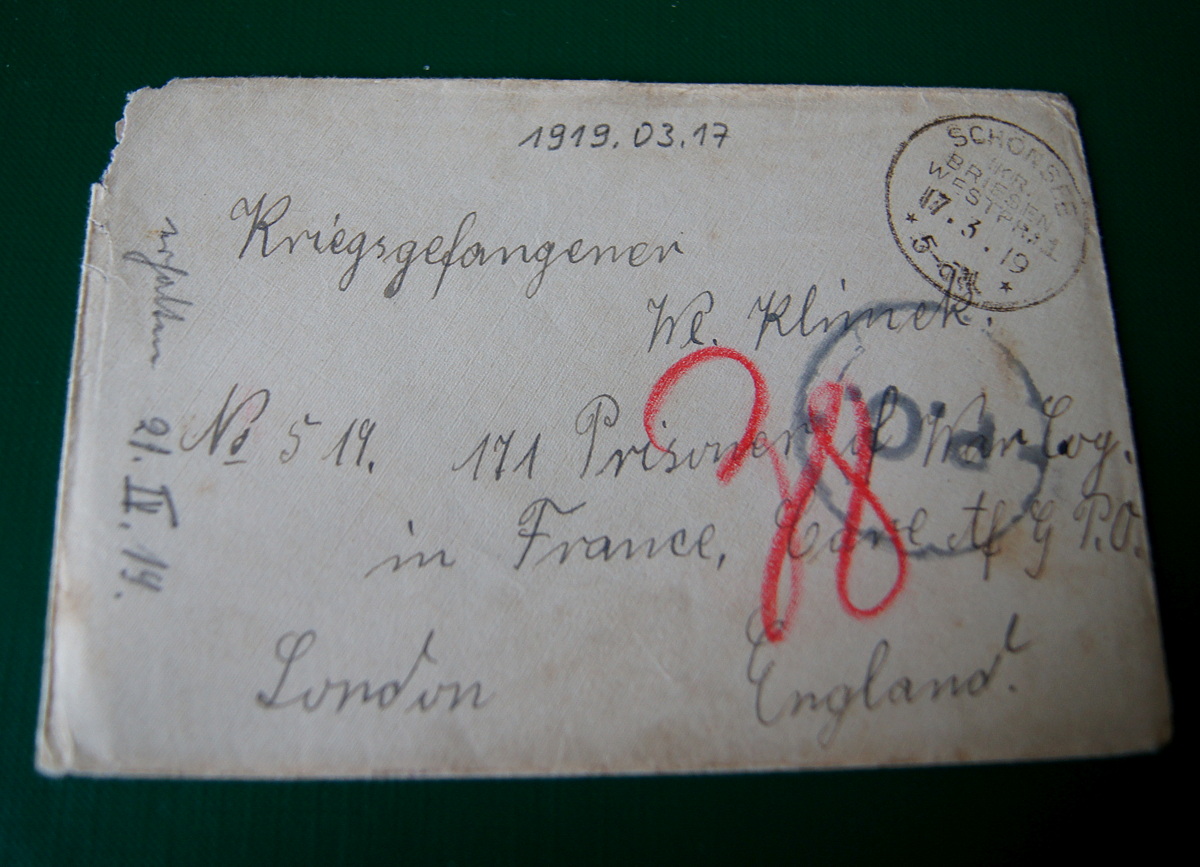 1919.03.17
SCHÖNSEE
(KR.
BRIESEN
WESTPR.)
17.3.19
* 5-6N *
Kriegsgefangener
We. Klimek.
38
No 519. 171 Prisoner of War Coy.
in France, Care of G P.O.
London England!
erhalten 21. IV. 19.